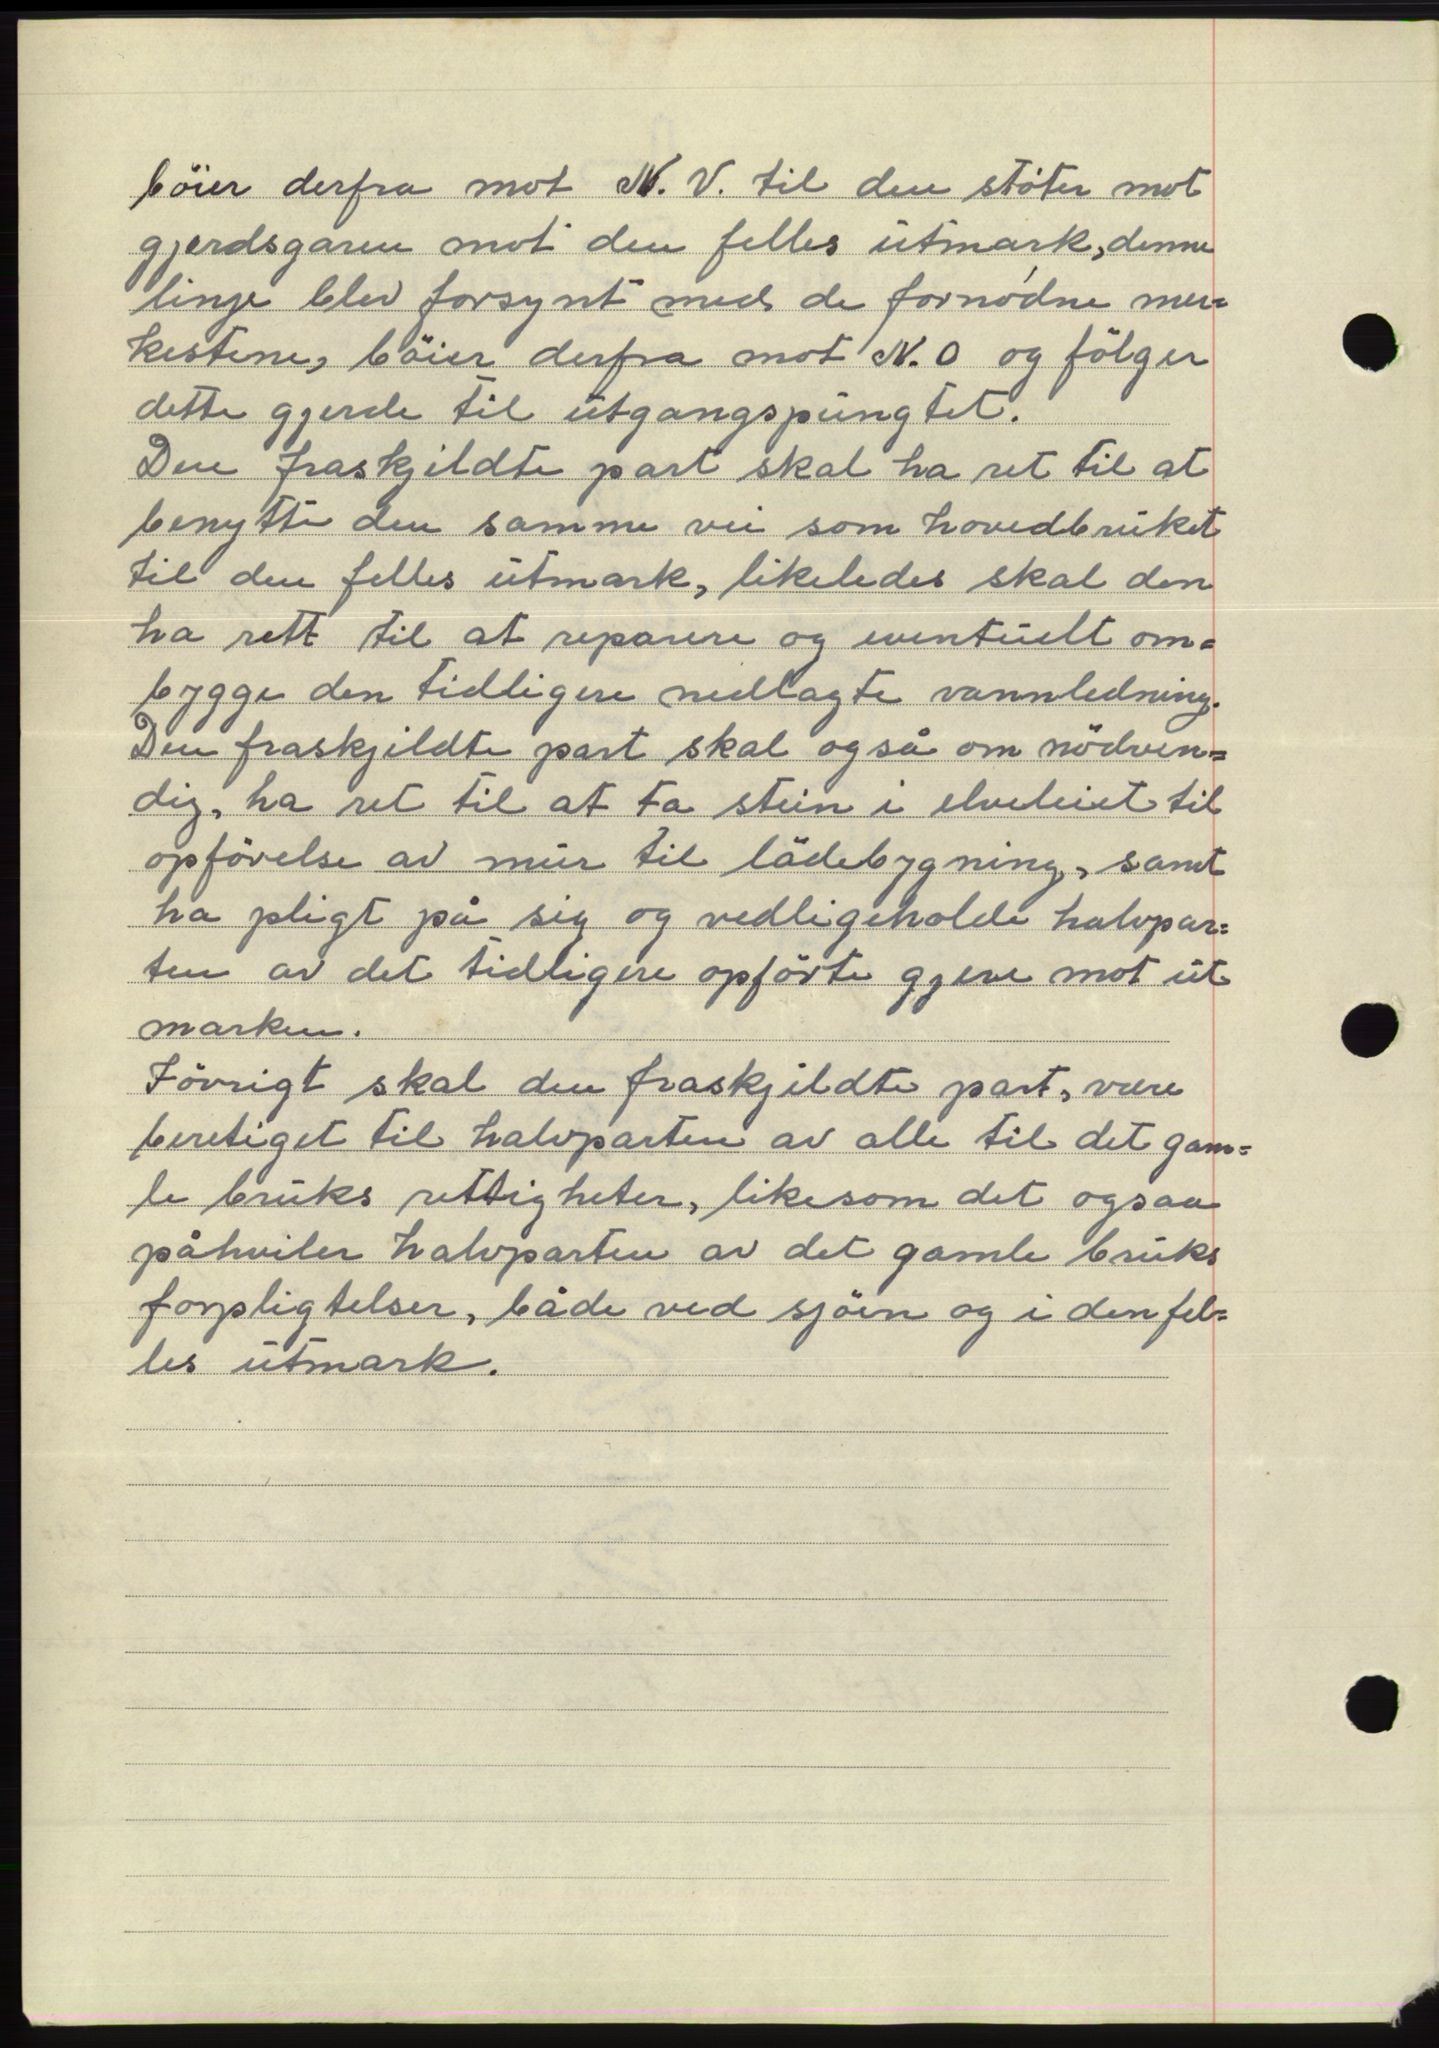 böier derfra mot N. V. til den stöter mot
gjerdsgaren mot den felles utmark, denne
linje blev forsynt med de fornödne mer=
kestene, böier derfra mot N. O og fölger
dette gjerde til utgangspungtet.
Den fraskjildte part skal ha ret til at
benytte den samme vei som hovedbruket
til den felles utmark, likeledes skal den
ha rett til at reparere og eventuelt om=
bygge den tidligere nedlagte vannledning.
Den fraskjildte part skal også om nödven=
dig, ha ret til at ta stein i elveleiet til
opförelse av mur til lödebygning, samt
ha pligt på sig og vedligeholde halvpar=
ten av det tidligere opförte gjere mot ut
marken.
Iövrigt skal den fraskjildte part, være
beretiget til halvparten av alle til det gam=
le bruks rettigheter, likesom det ogsaa
påhviler halvparten av det gamle bruks
forpligtelser, både ved sjöen og i den fel=
les utmark.